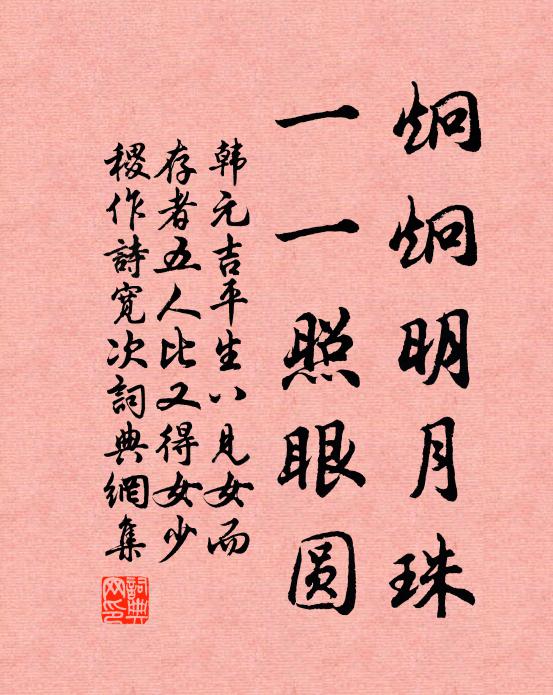 炯炯明月珠
一一照眼圆
韩元吉平生八見女而
存者五人比又得女少
稷作詩寛次詞典網集
詞典网印